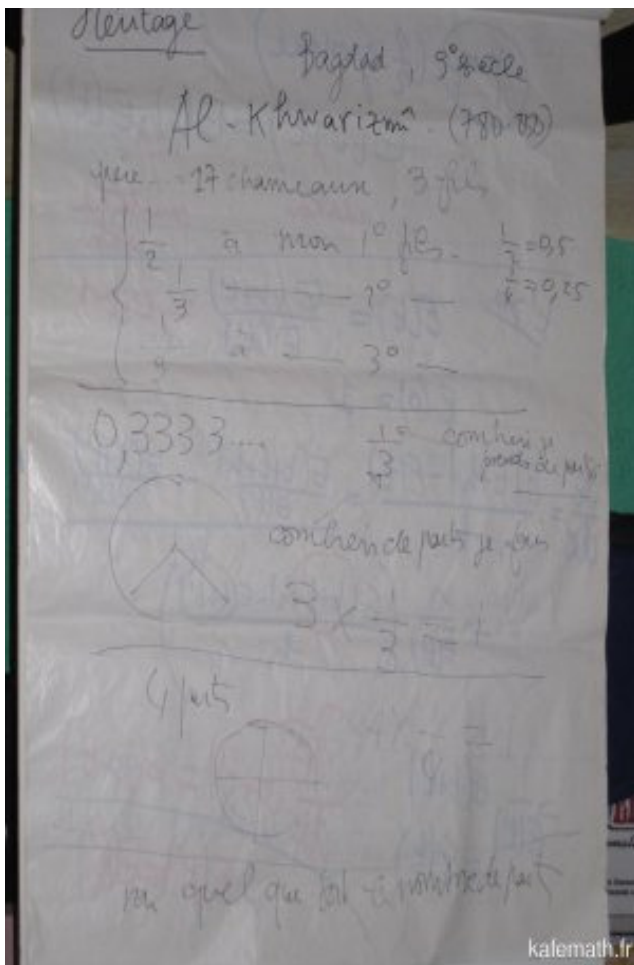 Héritage
Bagdad, 9° siècle
Al-Khwarizmî (780-850)
père 17 chameaux, 3 fils
1/2 à mon 1° fils. 1/2 = 0,5
1/3 2° 1/4 = 0,25
1/9 à 3°
0,3333....
1/3 combien je prends de parts
combien de parts je fais
3 × 1/3 = 1
4 parts
quel que soit nombre de parts
kalemath.fr